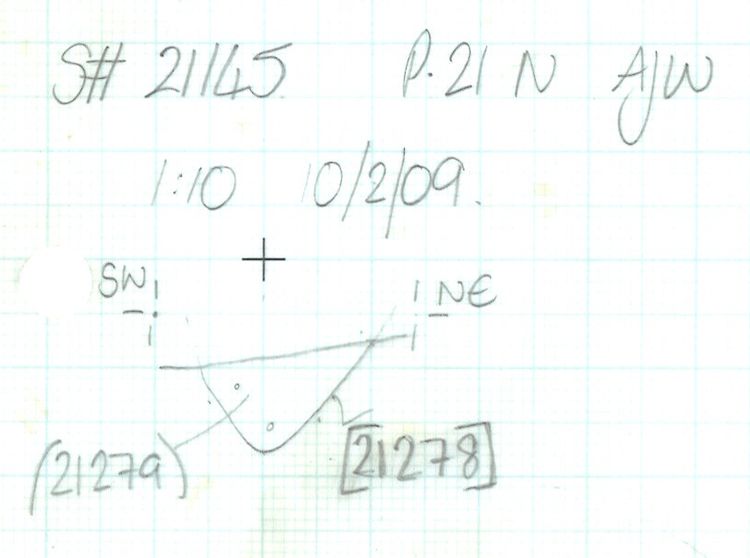 S# 21145 P.21 N AJW
1:10 10/2/09.
SW NE
(21279) [21278]